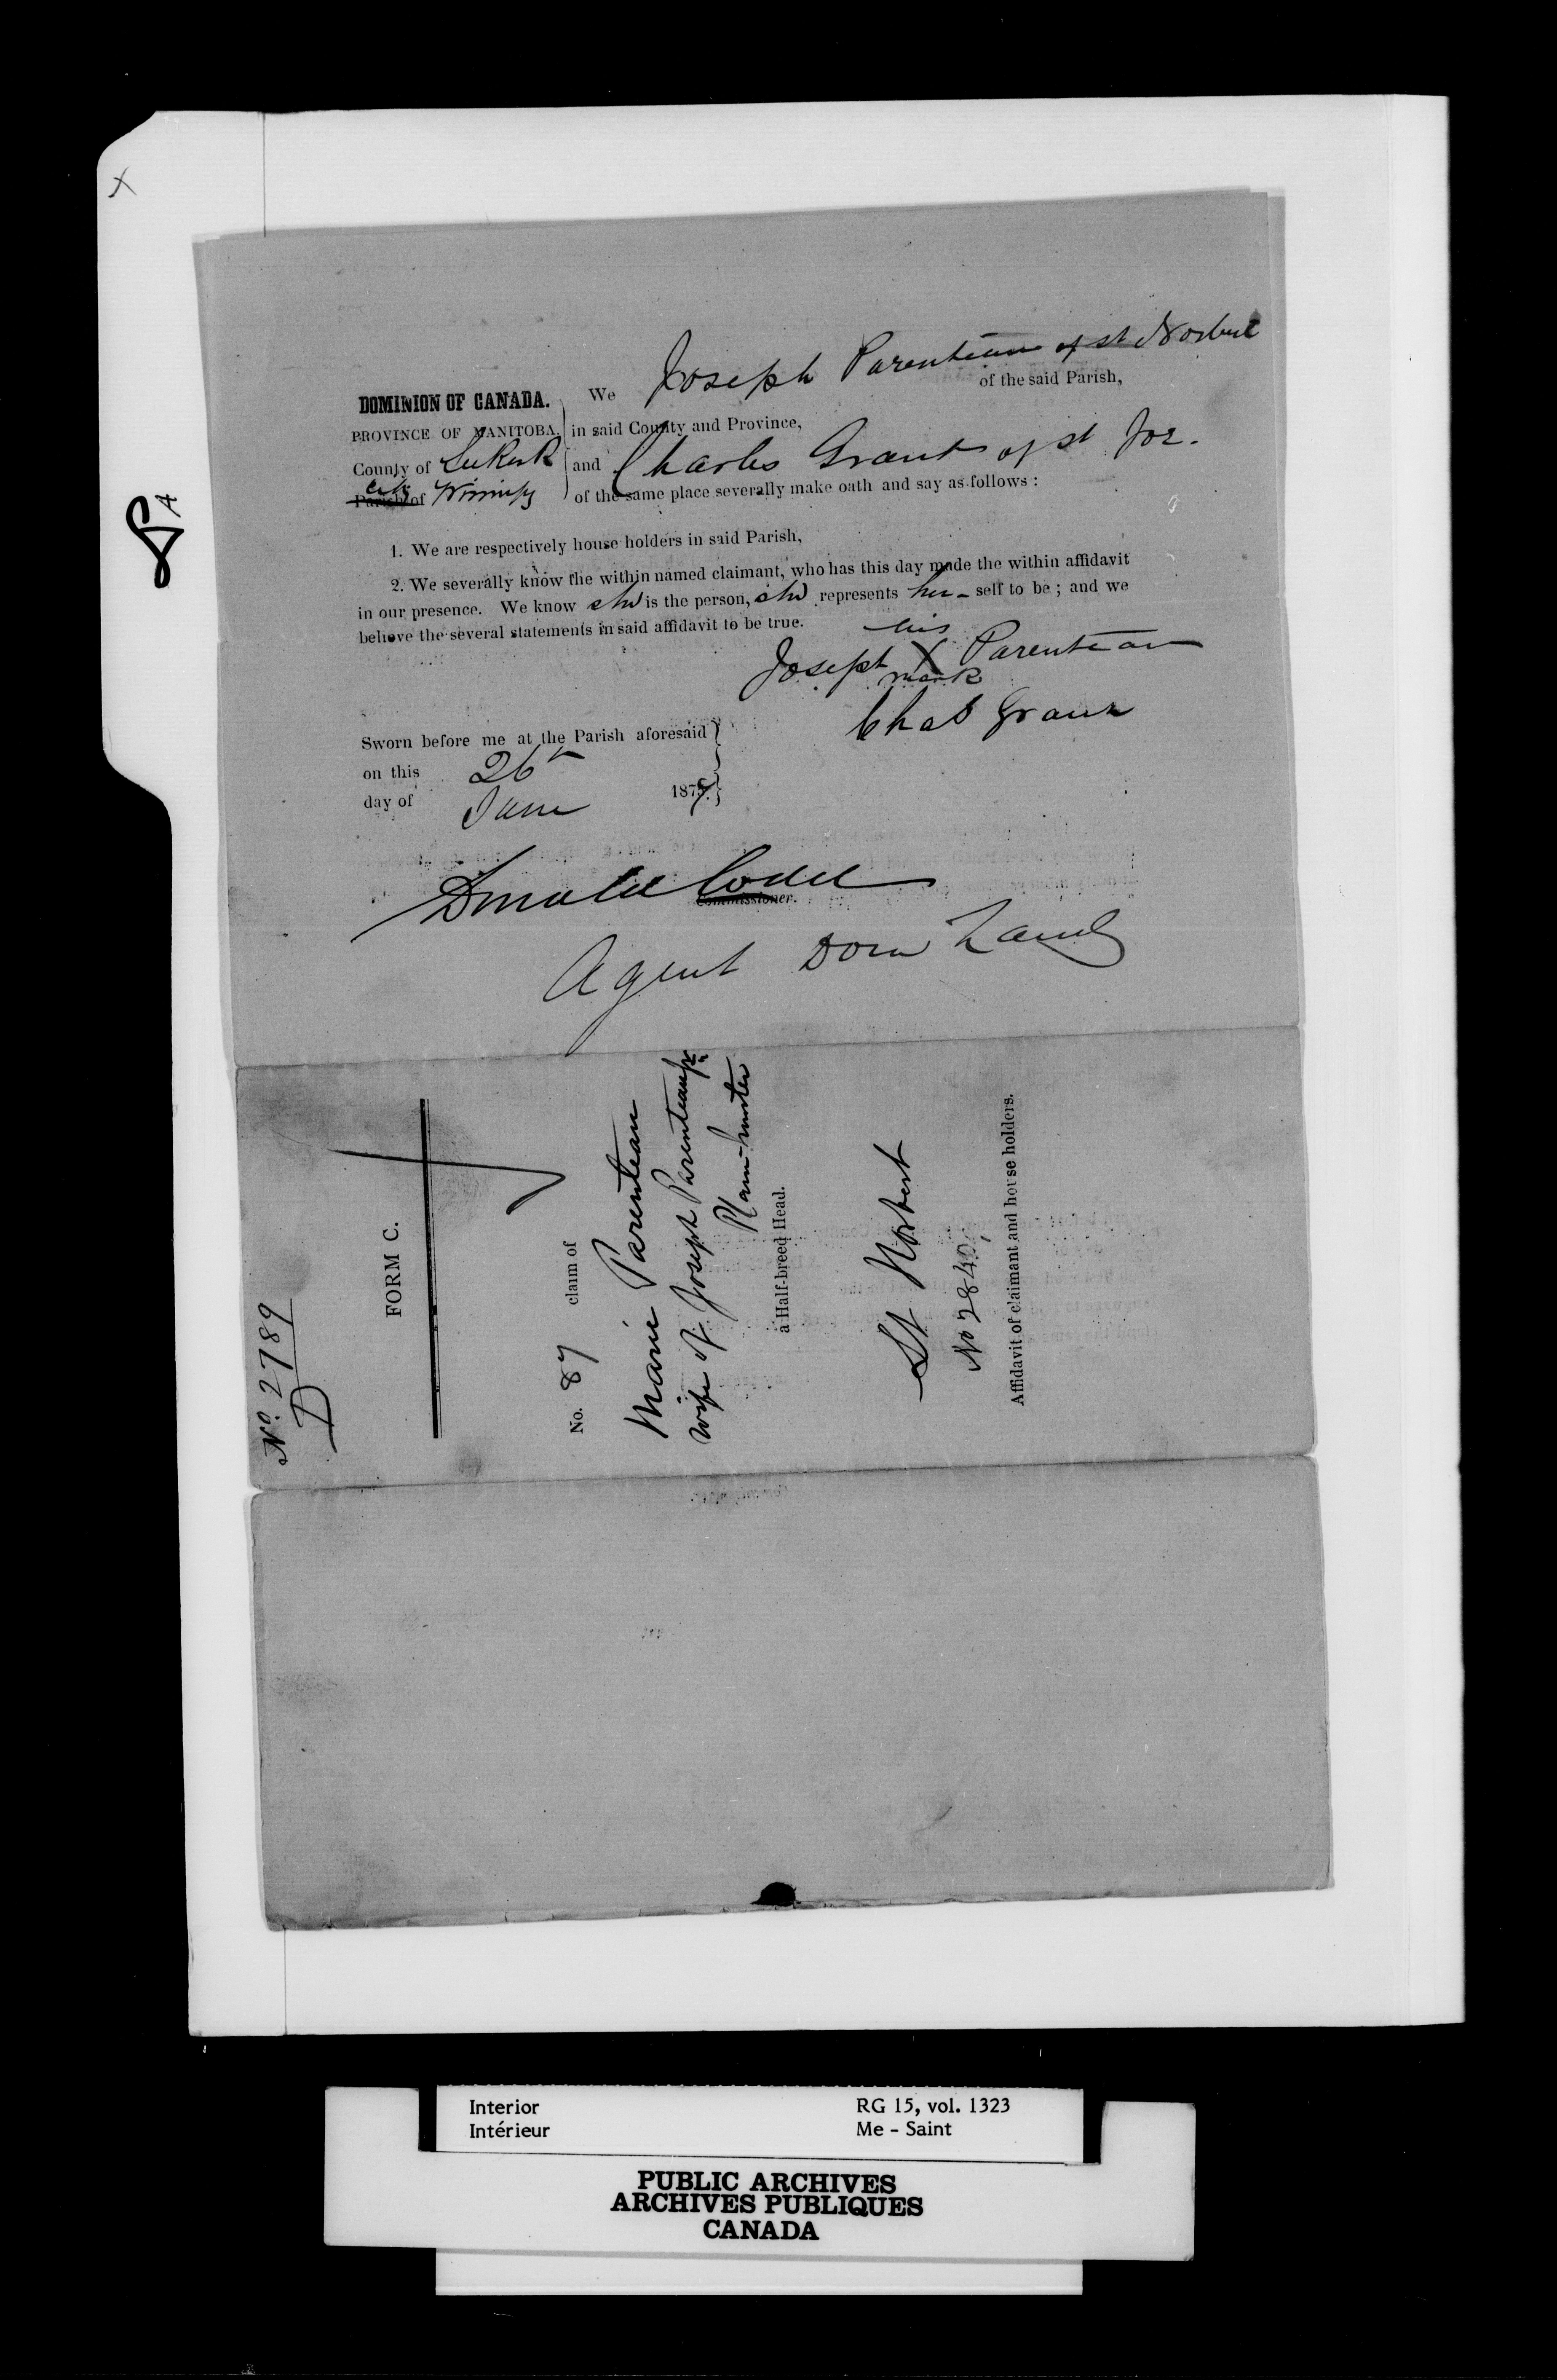 X
8A
We Joseph Parenteau of St Norbert
DOMINION OF CANADA.
of the said Parish,
PROVINCE OF MANITOBA, in said County and Province,
County of Selkirk and Charles Grant of St Joe.
City
Parish of Winnipeg of the same place severally make oath and say as follows :
1. We are respectively house holders in said Parish,
2. We severally know the within named claimant, who has this day made the within affidavit
in our presence. We know she is the person, she represents her - self to be ; and we
believe the several statements in said affidavit to be true.
his
Joseph X Parenteau
mark
Chas Grant
Sworn before me at the Parish aforesaid
on this 26th
day of June 1875.
Donald Codd
Commissioner.
Agent Dom Lands
No. 2789
D
FORM C.
No. 87 claim of
Marie Parenteau
wife of Joseph Parenteau Jr
Plain-hunter
a Half-breed Head.
St Norbert
No 2840,
Affidavit of claimant and house holders.
Interior
Intérieur
RG 15, vol. 1323
Me - Saint
PUBLIC ARCHIVES
ARCHIVES PUBLIQUES
CANADA